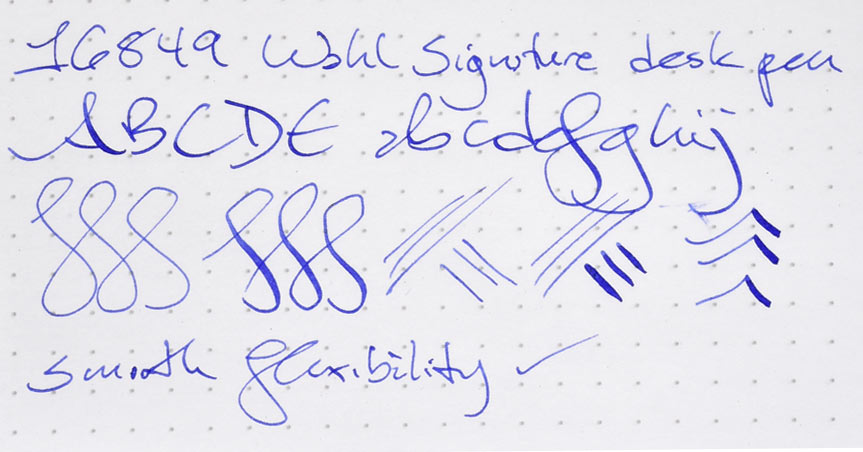 16849 Wahl Signature desk pen
ABCDE abcdefghij
smooth flexibility ✓